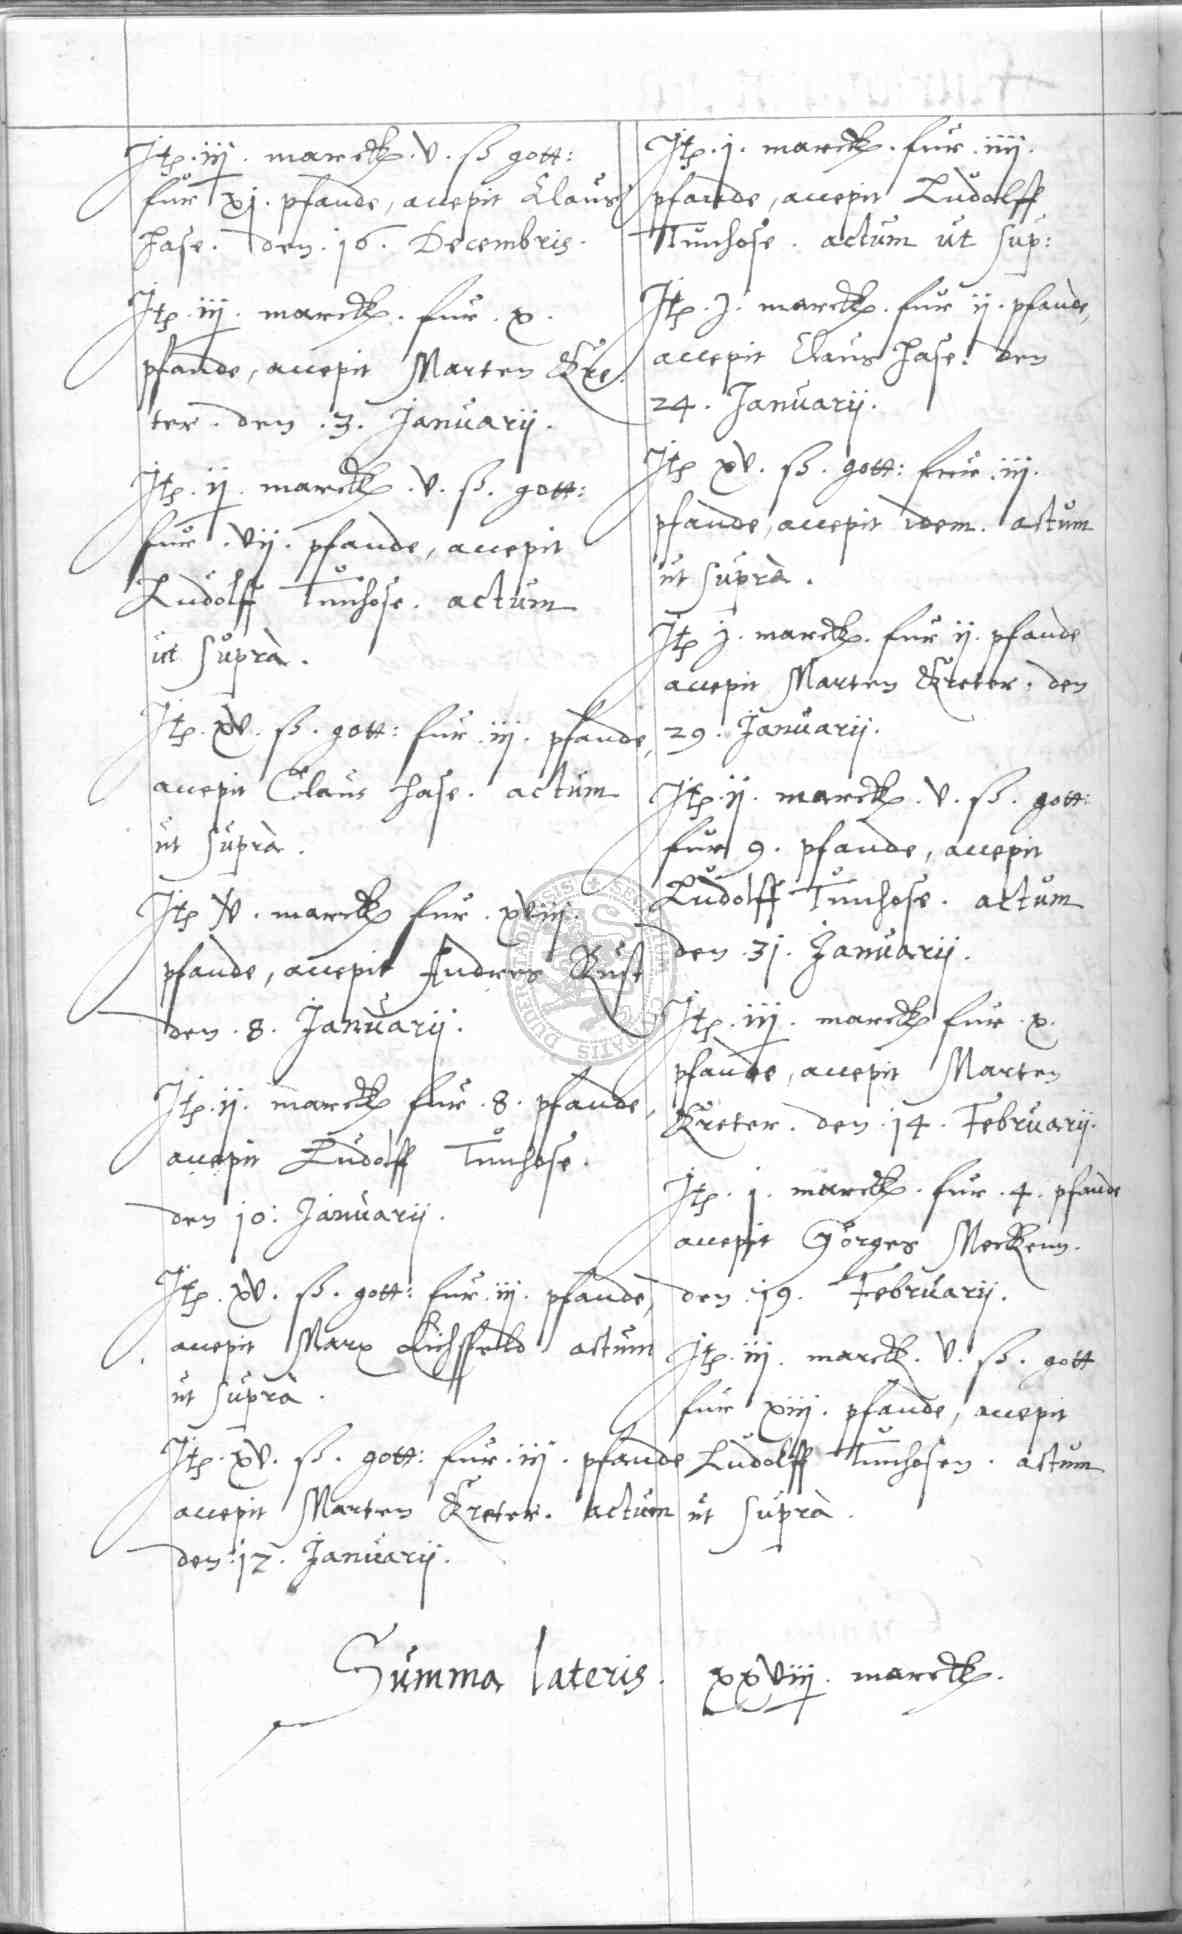 Itp. iij. marck. v. ß gott:
fur xj. pfande, accepit Claus
Hase. den .16. Decembris.
Itp. iij. marck. fur .x.
pfande, accepit Marten Kre:
ter. den .3. Januarij.
Itp. ij. marck. v. ß. gott:
fur .vij. pfande, accepit
Ludolff Tunhose. actum
ut suprà.
Itp. xv. ß. gott: fur .iij. pfande,
accepit Claus Hase. actum
ut suprà.
Itp. v. marck fur .xviij.
pfande, accepit Andres Rust
den .8. Januarij.
Itp. ij. marck fur .8. pfande,
accepit Ludolff Tunhose.
den 10. Januarij.
Itp. xv. ß. gott: fur .iij. pfande,
accepit Marx actum
ut suprà.
Itp. xv. ß. gott: fur .iij. pfande
accepit Marten Kreter. actum
den .17. Januarij.
Itp. j. marck. fur .iiij.
pfande, accepit Ludolff
Tunhose. actum ut sup:
Itp. j. marck. fur ij. pfande,
accepit Claus Hase. den
24. Januarij.
Itp xv. ß. gott: fur .iij.
pfande, accepit idem. actum
ut suprà.
Itp j. marck. fur ij. pfande
accepit Marten Kreter. den
29. Januarij.
Itp. ij. marck. v. ß. gott:
fur 9. pfande, accepit
Ludolff Tunhose. actum
den .31. Januarij.
Itp. iij. marck fur .x.
pfande, accepit Marten
Kreter. den .14. Februarij.
Itp. j. marck. fur .4. pfande
accepit Görges
den .19. Februarij.
Itp. iij. marck. v. ß. gott
fur xiij. pfande, accepit
Ludolff Tunhosen. actum
ut suprà.
Summa lateris. xxviij. marck.